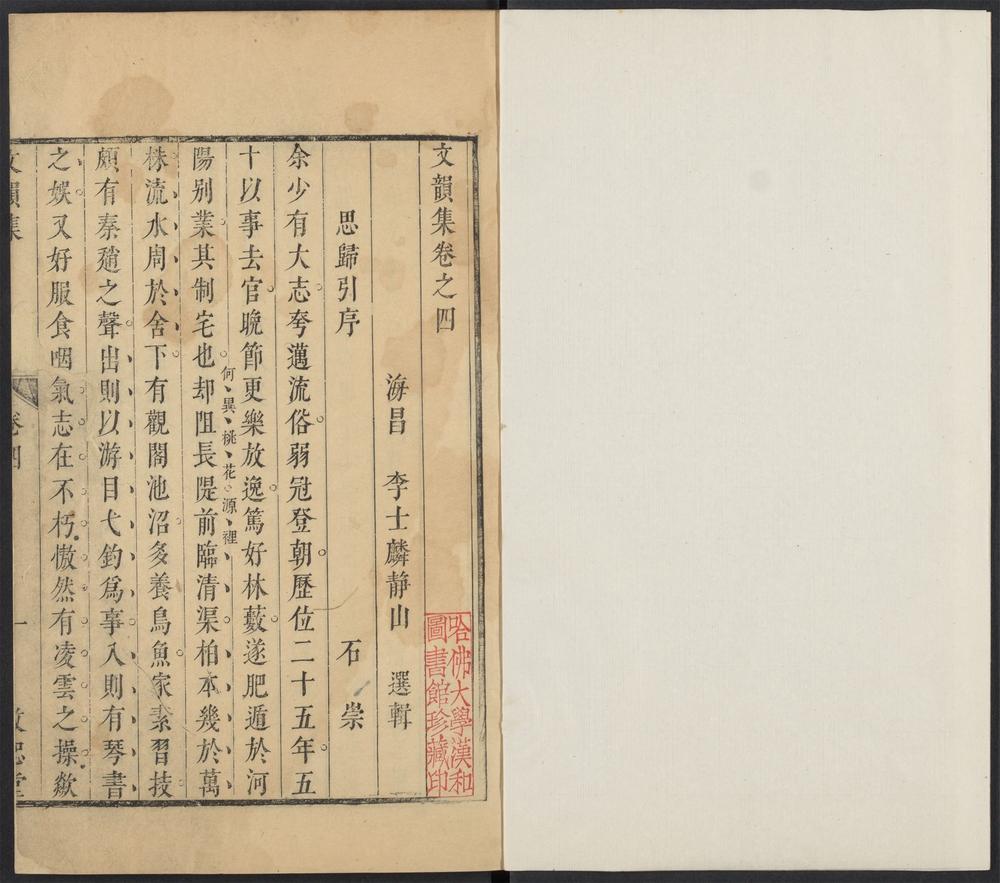 文韻集卷之四
海昌 李士麟静山 選輯
思歸引序 石崇
余少有大志夸邁流俗弱冠登朝歷位二十五年五
十以事去官晚節更樂放逸篤好林藪遂肥遁於河
何異桃花源裡
陽别業其制宅也却阻長隄前臨清渠柏木幾於萬
株流水周於舍下有觀閣池沼多養鳥魚家素習技
頗有秦趙之聲出則以游目弋釣爲事入則有琴書
之娱又好服食咽氣志在不朽傲然有凌雲之操歘
文韻集 卷四 一
哈佛大學漢和
圖書館珍藏印